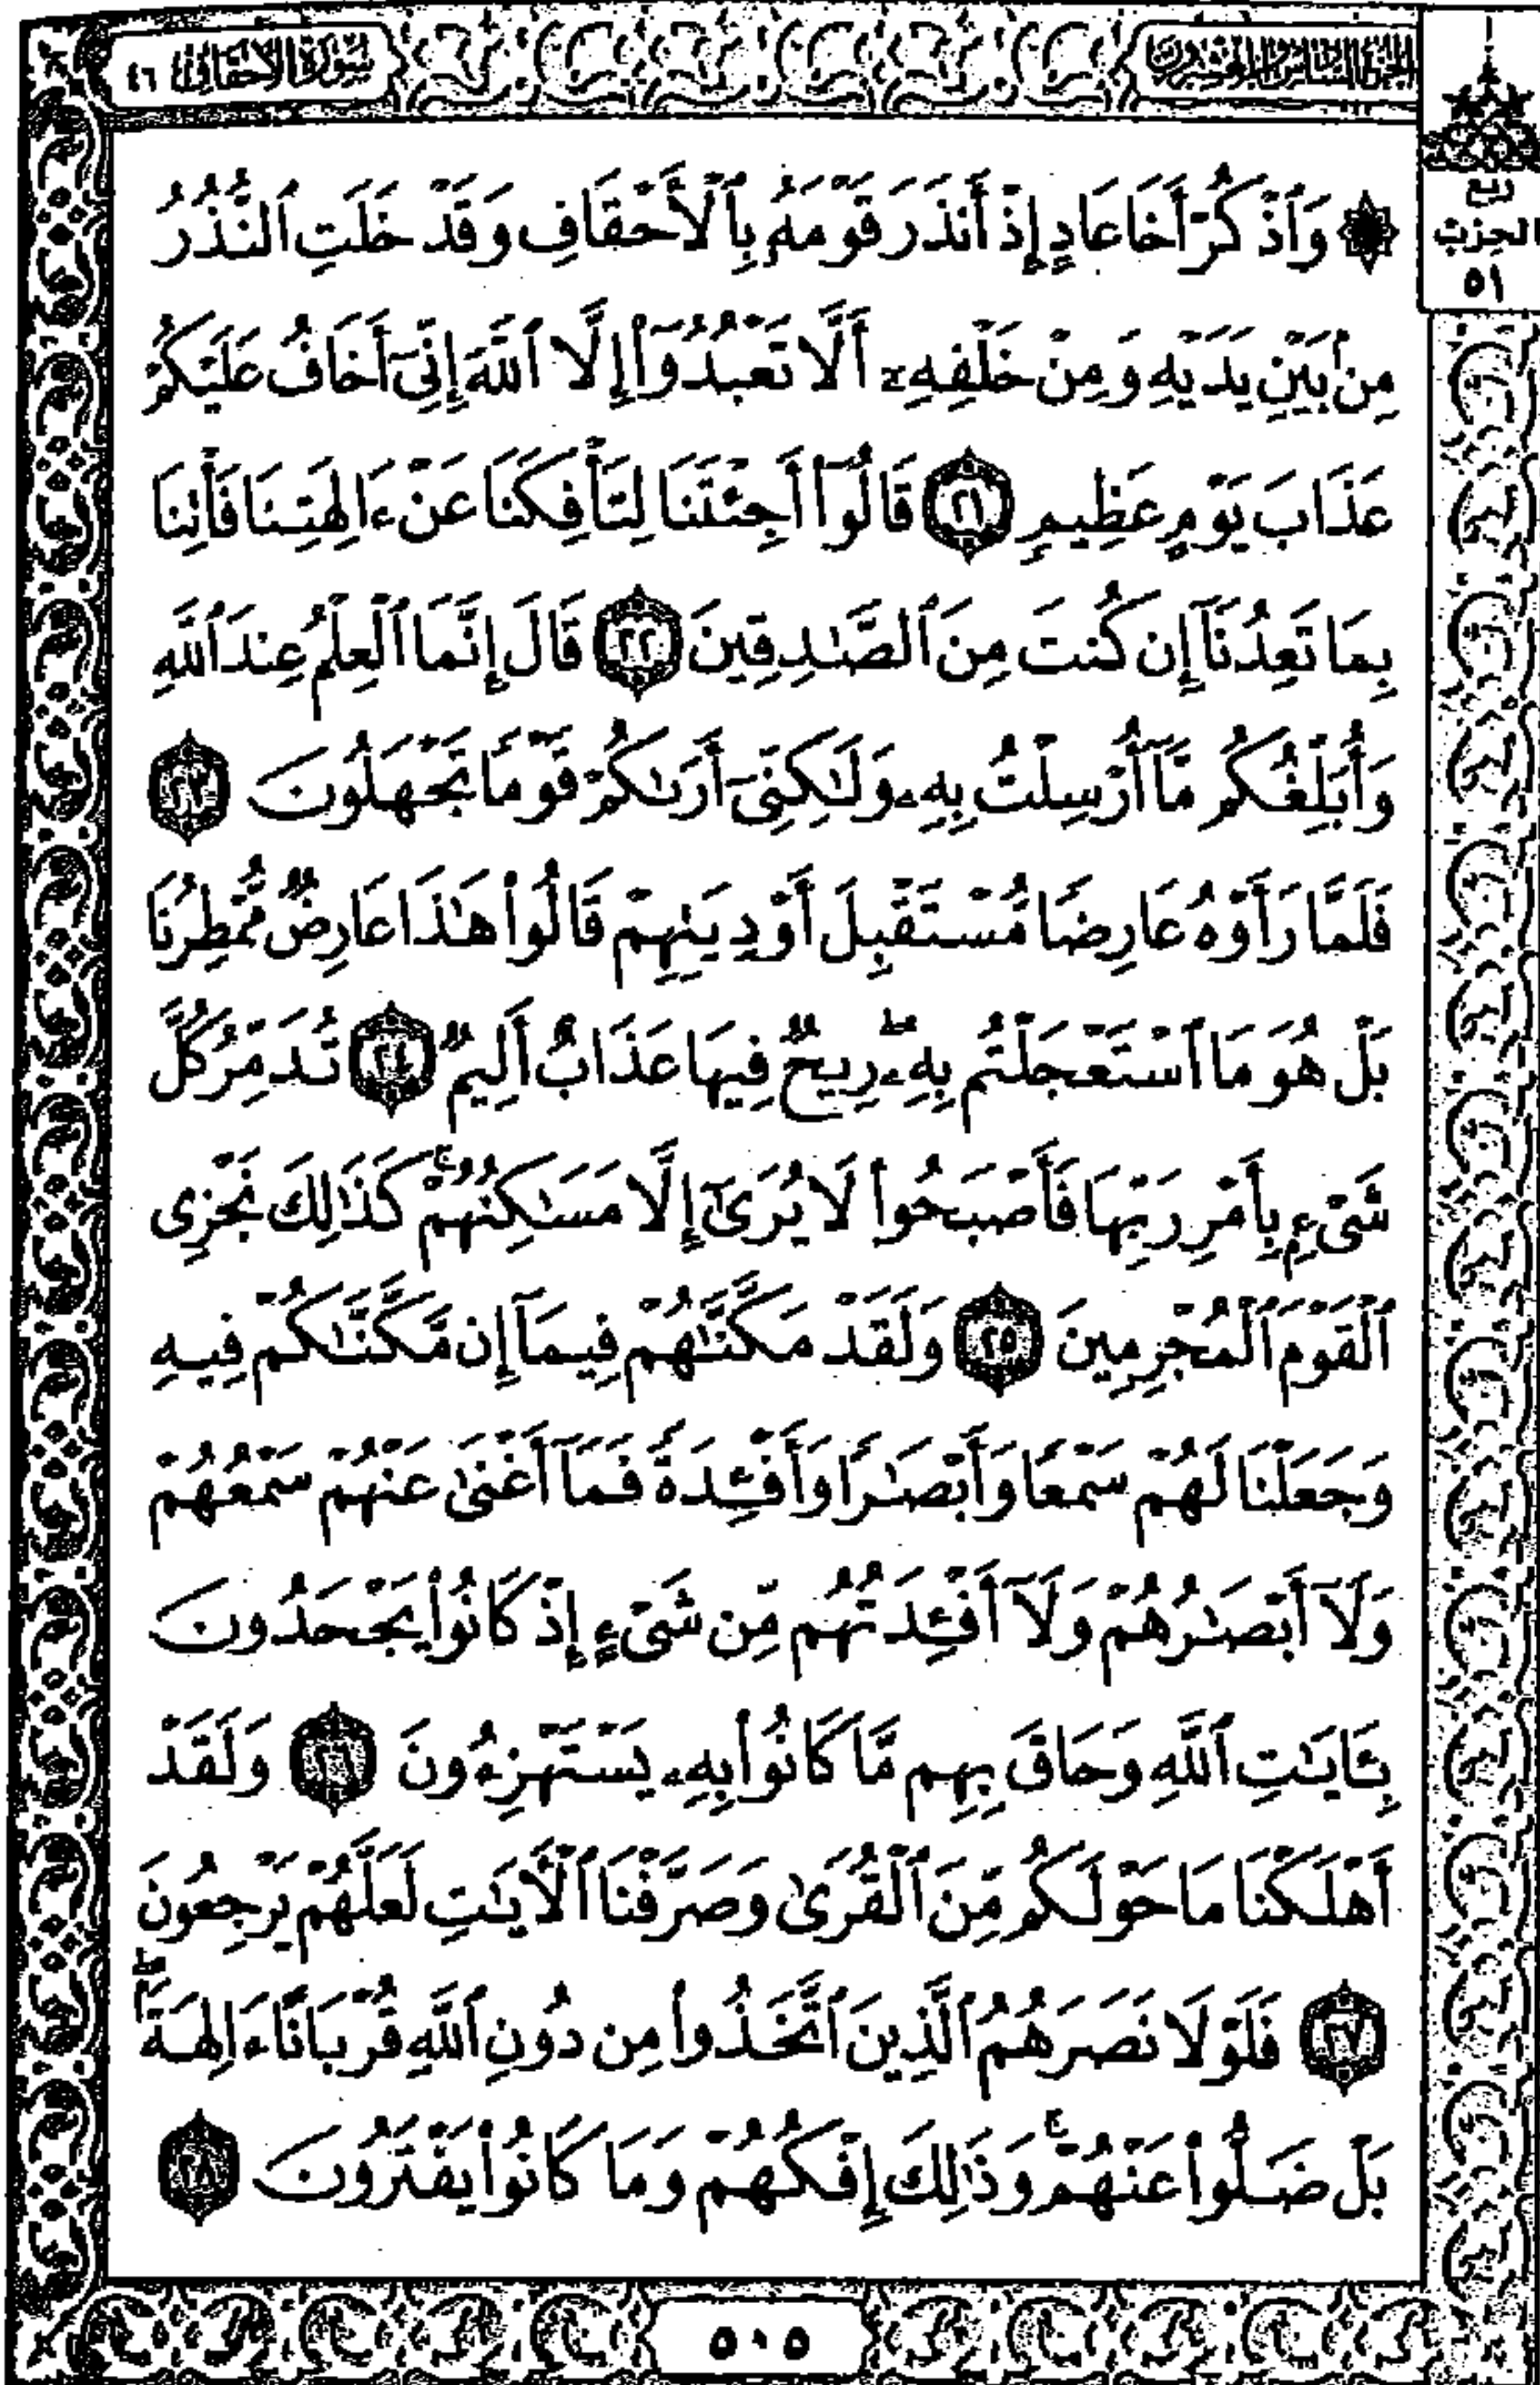 الجزء السادس والعشرون
سورة الأحقاف ٤٦
ربع
الحزب
٥١
۞ وَٱذْكُرْ أَخَا عَادٍ إِذْ أَنذَرَ قَوْمَهُۥ بِٱلْأَحْقَافِ وَقَدْ خَلَتِ ٱلنُّذُرُ
مِنۢ بَيْنِ يَدَيْهِ وَمِنْ خَلْفِهِۦٓ أَلَّا تَعْبُدُوٓا۟ إِلَّا ٱللَّهَ إِنِّىٓ أَخَافُ عَلَيْكُمْ
عَذَابَ يَوْمٍ عَظِيمٍ ٢١ قَالُوٓا۟ أَجِئْتَنَا لِتَأْفِكَنَا عَنْ ءَالِهَتِنَا فَأْتِنَا
بِمَا تَعِدُنَآ إِن كُنتَ مِنَ ٱلصَّـٰدِقِينَ ٢٢ قَالَ إِنَّمَا ٱلْعِلْمُ عِندَ ٱللَّهِ
وَأُبَلِّغُكُم مَّآ أُرْسِلْتُ بِهِۦ وَلَـٰكِنِّىٓ أَرَىٰكُمْ قَوْمًا تَجْهَلُونَ ٢٣
فَلَمَّا رَأَوْهُ عَارِضًا مُّسْتَقْبِلَ أَوْدِيَتِهِمْ قَالُوا۟ هَـٰذَا عَارِضٌ مُّمْطِرُنَا
بَلْ هُوَ مَا ٱسْتَعْجَلْتُم بِهِۦ ۖ رِيحٌ فِيهَا عَذَابٌ أَلِيمٌ ٢٤ تُدَمِّرُ كُلَّ
شَىْءٍۭ بِأَمْرِ رَبِّهَا فَأَصْبَحُوا۟ لَا يُرَىٰٓ إِلَّا مَسَـٰكِنُهُمْ ۚ كَذَٰلِكَ نَجْزِى
ٱلْقَوْمَ ٱلْمُجْرِمِينَ ٢٥ وَلَقَدْ مَكَّنَّـٰهُمْ فِيمَآ إِن مَّكَّنَّـٰكُمْ فِيهِ
وَجَعَلْنَا لَهُمْ سَمْعًا وَأَبْصَـٰرًا وَأَفْـِٔدَةً فَمَآ أَغْنَىٰ عَنْهُمْ سَمْعُهُمْ
وَلَآ أَبْصَـٰرُهُمْ وَلَآ أَفْـِٔدَتُهُم مِّن شَىْءٍ إِذْ كَانُوا۟ يَجْحَدُونَ
بِـَٔايَـٰتِ ٱللَّهِ وَحَاقَ بِهِم مَّا كَانُوا۟ بِهِۦ يَسْتَهْزِءُونَ ٢٦ وَلَقَدْ
أَهْلَكْنَا مَا حَوْلَكُم مِّنَ ٱلْقُرَىٰ وَصَرَّفْنَا ٱلْـَٔايَـٰتِ لَعَلَّهُمْ يَرْجِعُونَ
٢٧ فَلَوْلَا نَصَرَهُمُ ٱلَّذِينَ ٱتَّخَذُوا۟ مِن دُونِ ٱللَّهِ قُرْبَانًا ءَالِهَةًۢ ۖ
بَلْ ضَلُّوا۟ عَنْهُمْ ۚ وَذَٰلِكَ إِفْكُهُمْ وَمَا كَانُوا۟ يَفْتَرُونَ ٢٨
٥٠٥